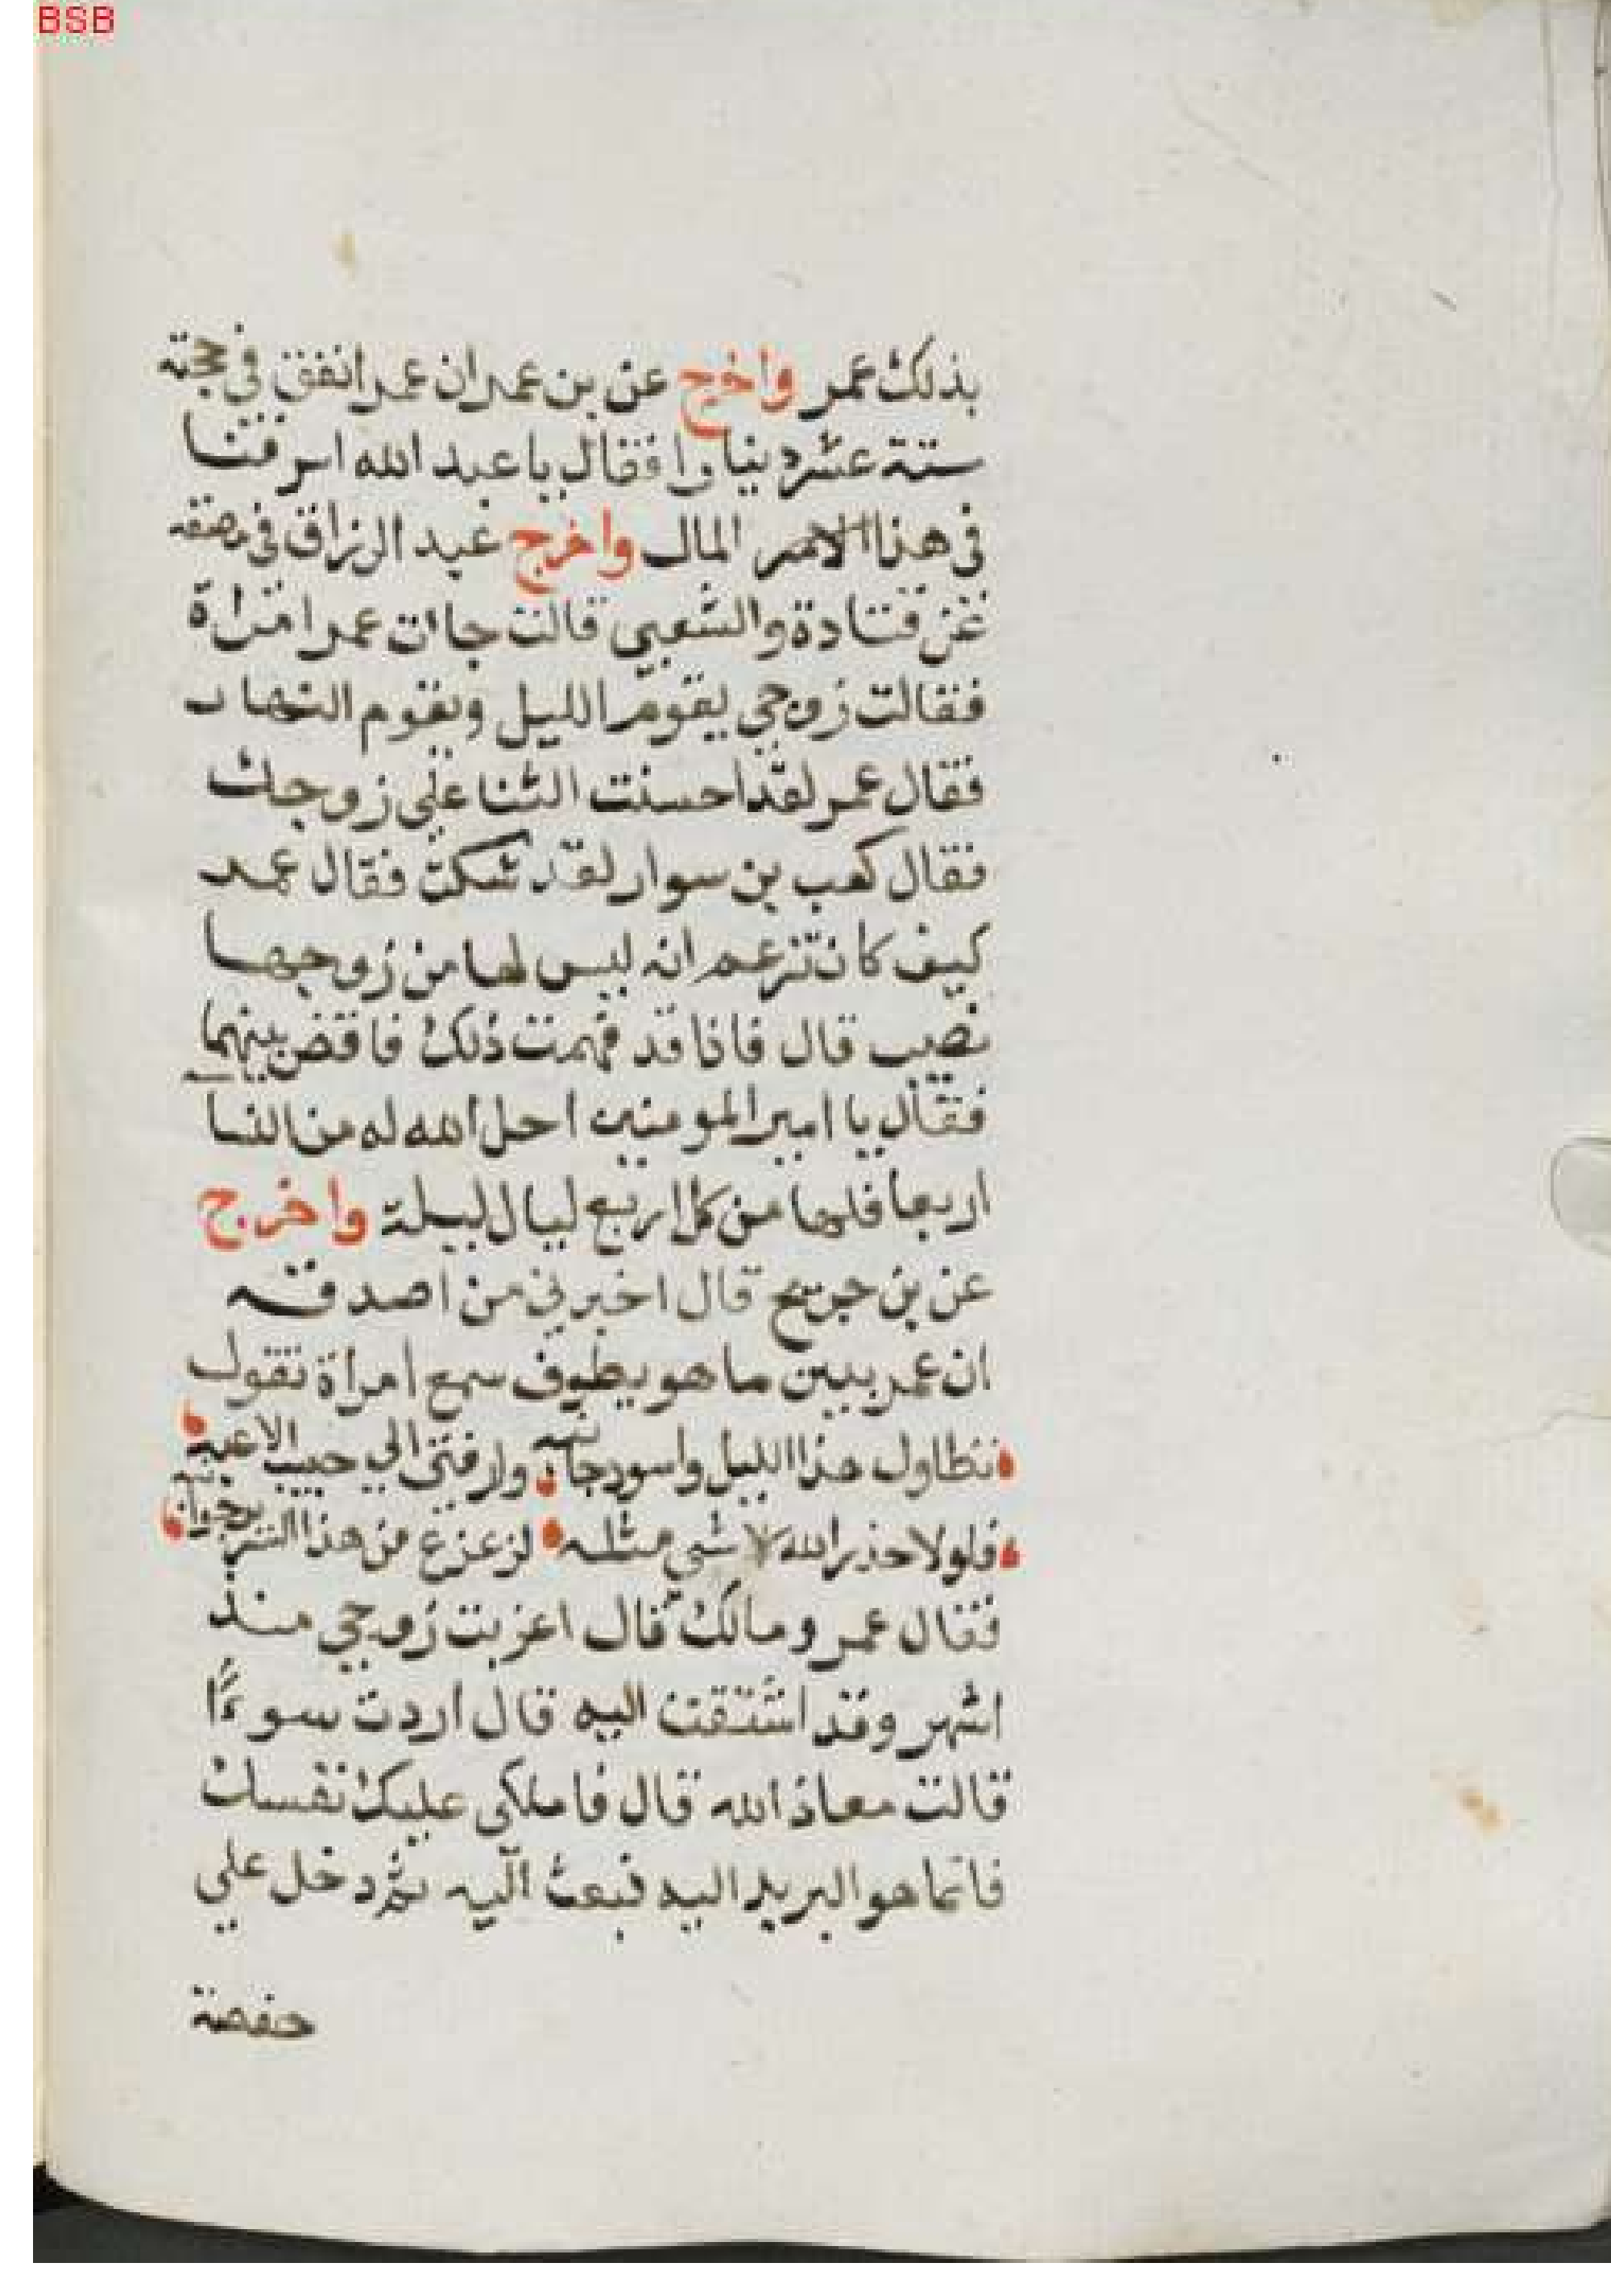 BSB
بذلك عمر واخرج عن بن عمر ان عمر انفق في حجته
ستة عشر دينارا فقال يا عبد الله اسرفنا
في هذا الامر المال واخرج عبد الرزاق في مصنفه
عن قتادة والشعبي قالت جاات عمر امراة
فقالت زوجي يقوم الليل ويقوم النهار
فقال عمر لقد احسنت الثنا على زوجك
فقال كعب بن سوار لقد شكت فقال عمر
كيف كان تزعم انه ليس لها من زوجها
نصيب قال فاذا قد فهمت ذلك فاقض بينهما
فقال يا امير المومنين احل الله له من النسا
اربعا فلها من كل اربع ليال ليلة واخرج
عن بن جريج قال اخبرني من اصدقه
ان عمر بين ما هو يطوف سمع امراة تقول
تطاول هذا الليل واسود جانبه وارقتني الي حبيب الاعبه
فلولا حذر الله لا شي مثله لزعزع من هذا السرير جوانبه
فقال عمر ومالك قال اعزبت زوجي منذ
اشهر وقد اشتقت اليه قال اردت سوءًا
قالت معاذ الله قال فاملكى عليك نفسك
فانما هو البريد اليه فبعث اليه ثم دخل علي
حفصة